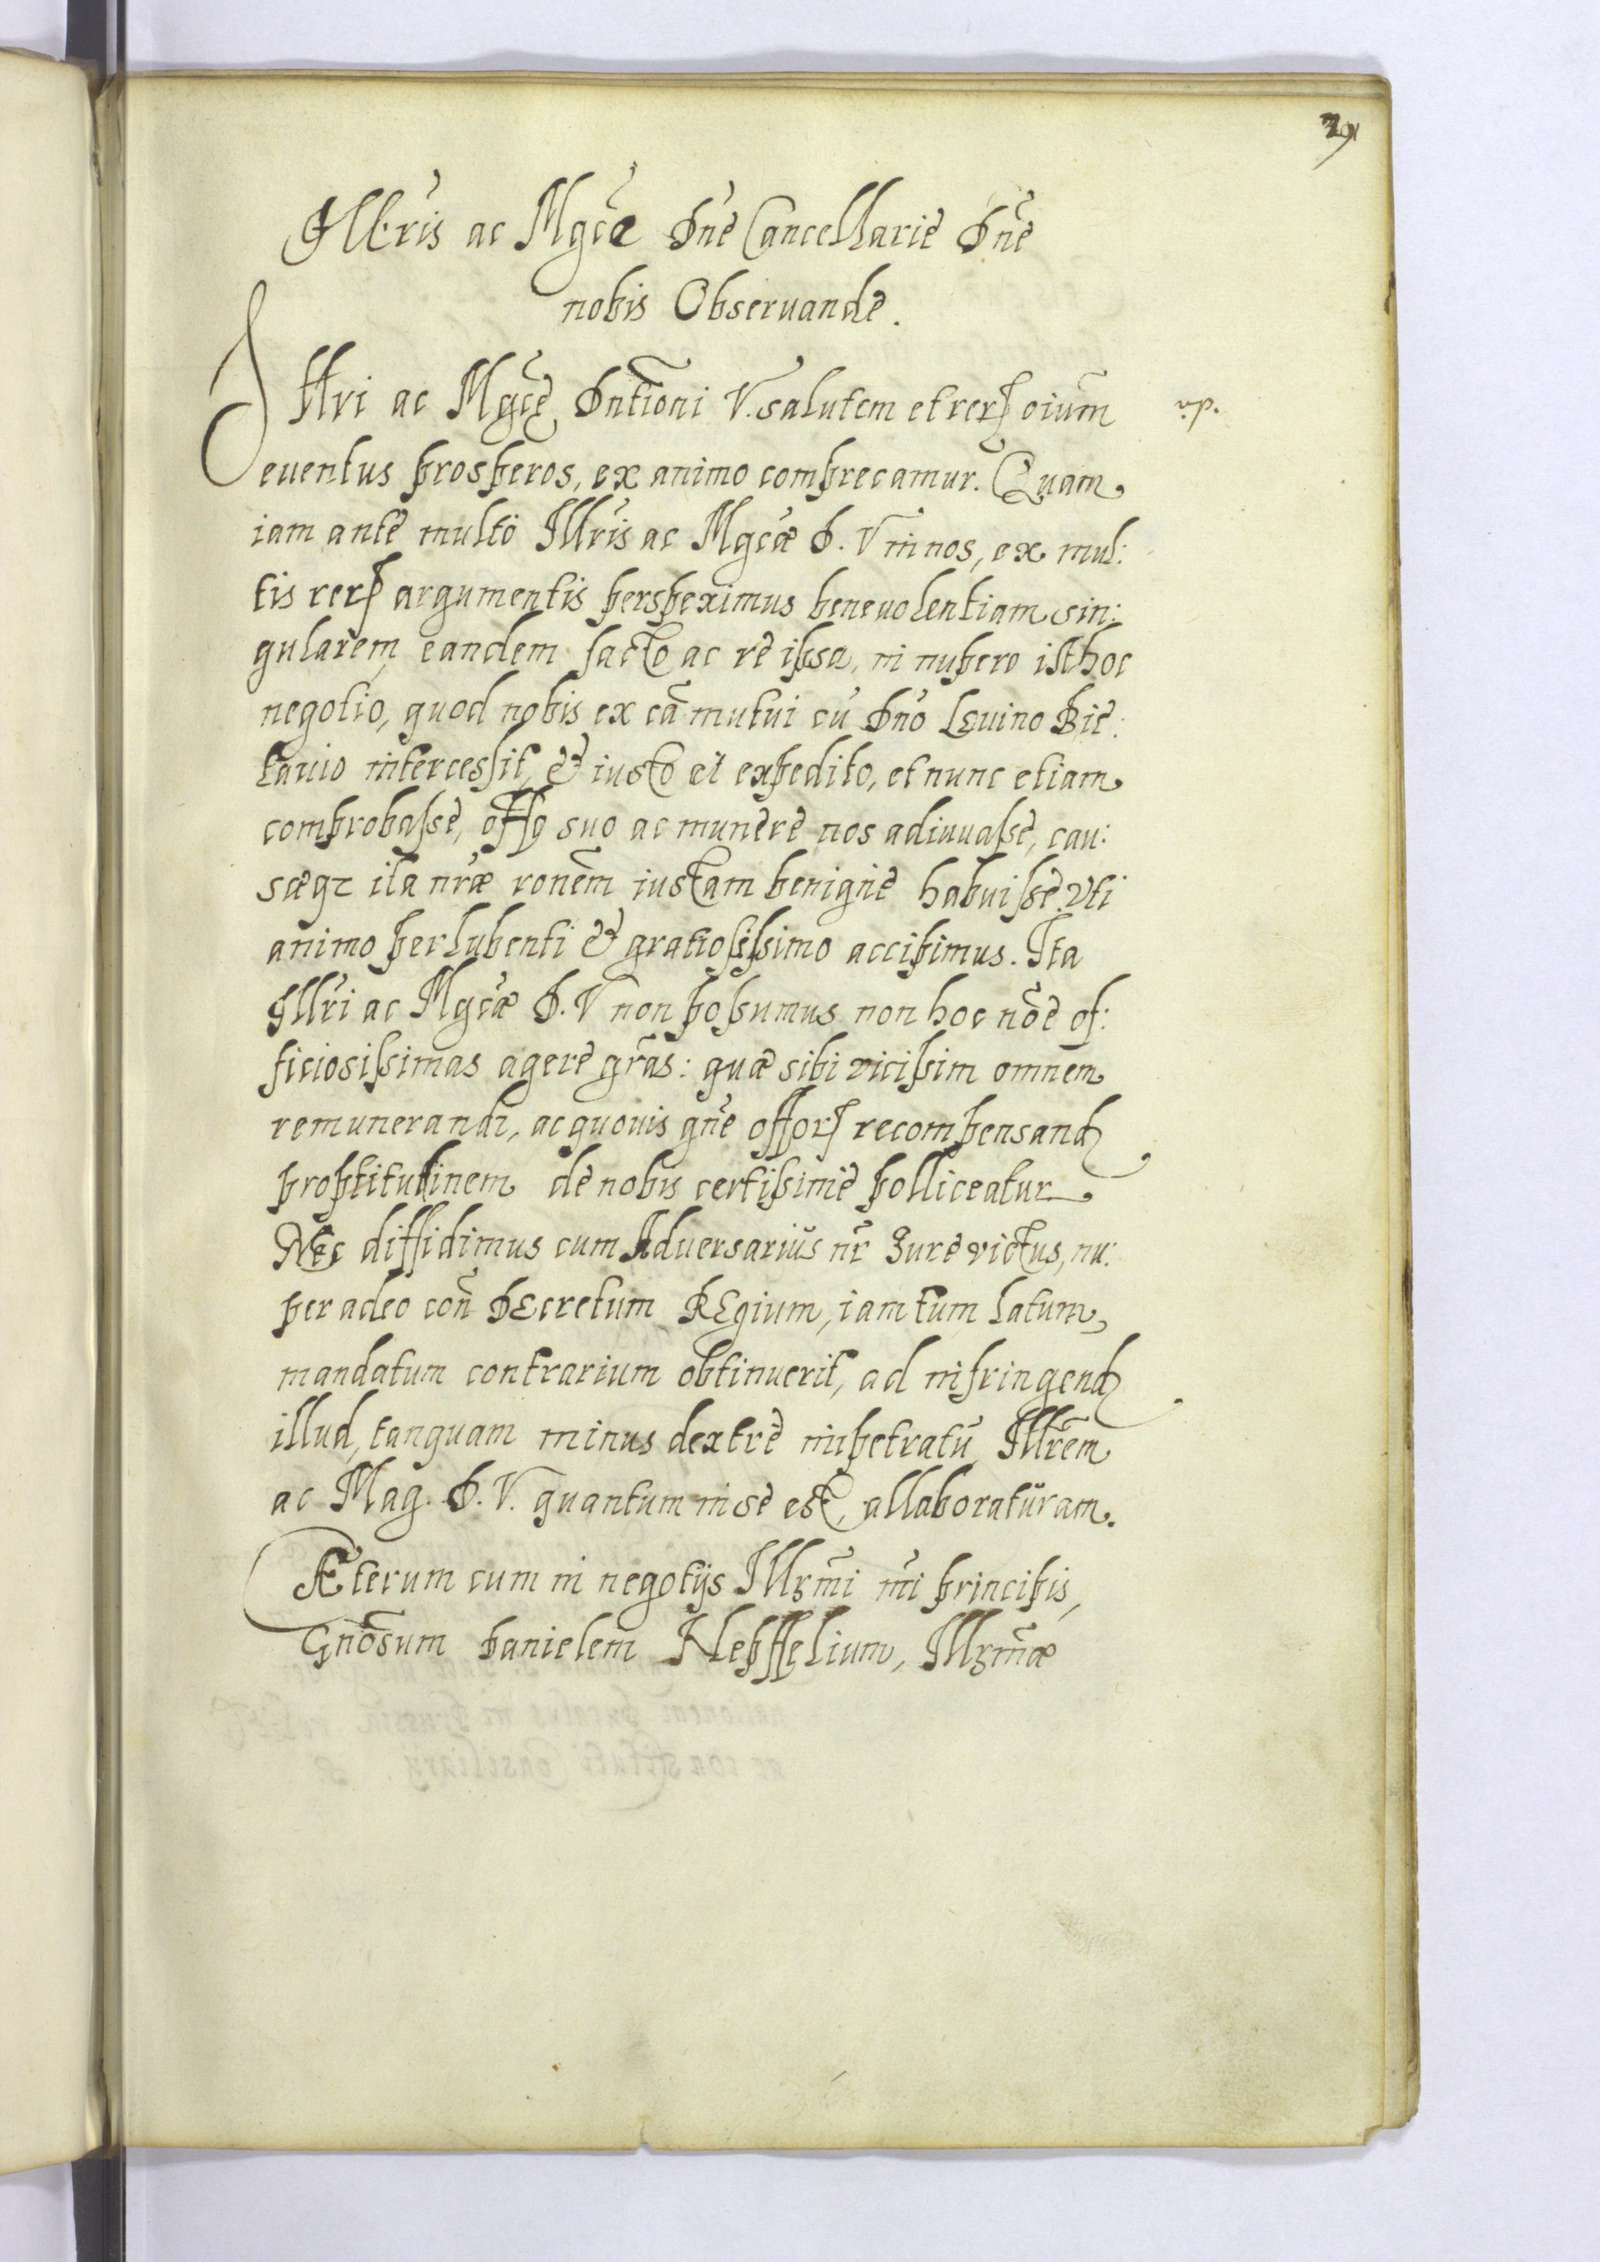 Illris ac Mgce Dne Cancellarie Dne
nobis Obseruande.
Illri ac Mgcę Dntioni V. salutem et rerꝝ oium
euentus prosperos, ex animo comprecamur. Quam
iam ante multo Illris ac Mgcæ D. V in nos, ex mul:
tis rerꝝ argumentis perspeximus beneuolentiam sin:
gularem, eandem facto ac re ipsa, in nupero isthoc
negotio, quod nobis ex cã mutui cũ Dno Lęuino
intercessit, & iusto et expedito, et nunc etiam
comprobasse, suo ac munere nos adiuuasse, cau:
sæq ita nræ ronem iustam benigne habuisse, vti
animo perlubenti & gratiosissimo accipimus. Ita
Illri ac Mgcæ D. V non possumus non hoc nõe of:
ficiosissimas agere gras: quæ sibi vicissim omnem
remunerandi, ac quouis gne offorꝝ recompensand
proptitudinem de nobis certissime polliceatur
Nec diffidimus cum Aduersarius nr Iure victus, nu:
per adeo con Decretum Regium, iam tum latum,
mandatum contrarium obtinuerit, ad infringend
illud, tanquam minus dextre impetratũ, Illrem
ac Mag. D. V. quantum in se est, allaboraturam.
Cæterum cum in negotijs Illmi nri principis,
Gnosum Danielem Neppfelium, Illmæ